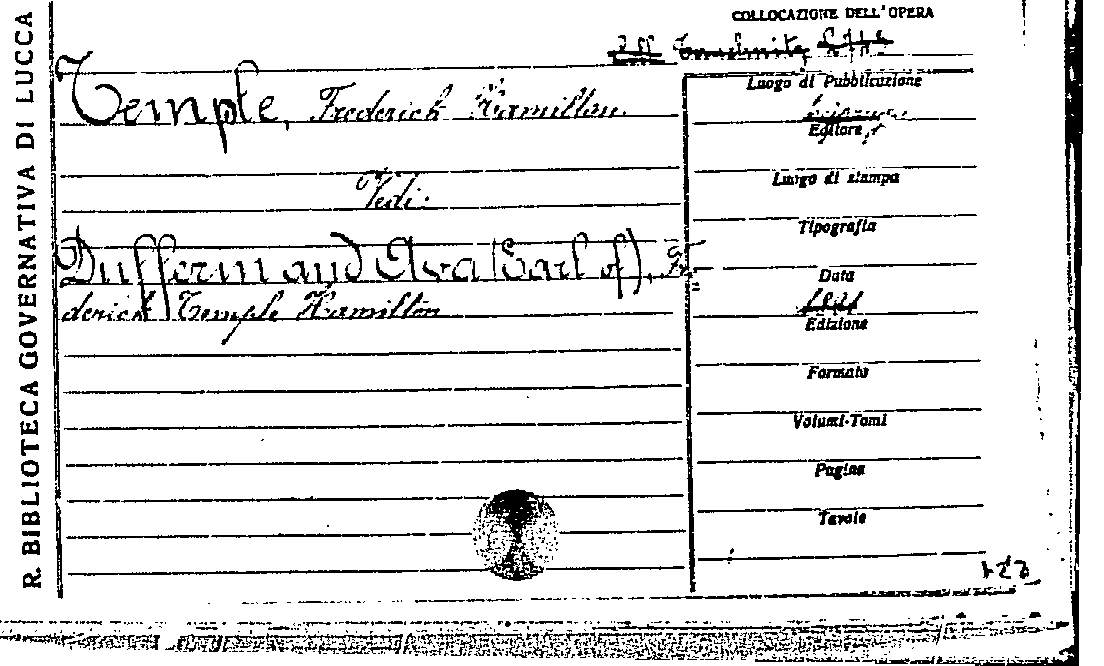 R. BIBLIOTECA GOVERNATIVA DI LUCCA
COLLOCAZIONE DELL'OPERA
Tauchnitz
Temple, Frederick Hamilton.
Vedi:
Dufferin and Ava (Earl of), Fre-
derick Temple Hamilton
Luogo di Pubblicazione
Editore
Luogo di stampa
Tipografia
Data
Edizione
Formato
Volumi-Tomi
Pagine
Tavole